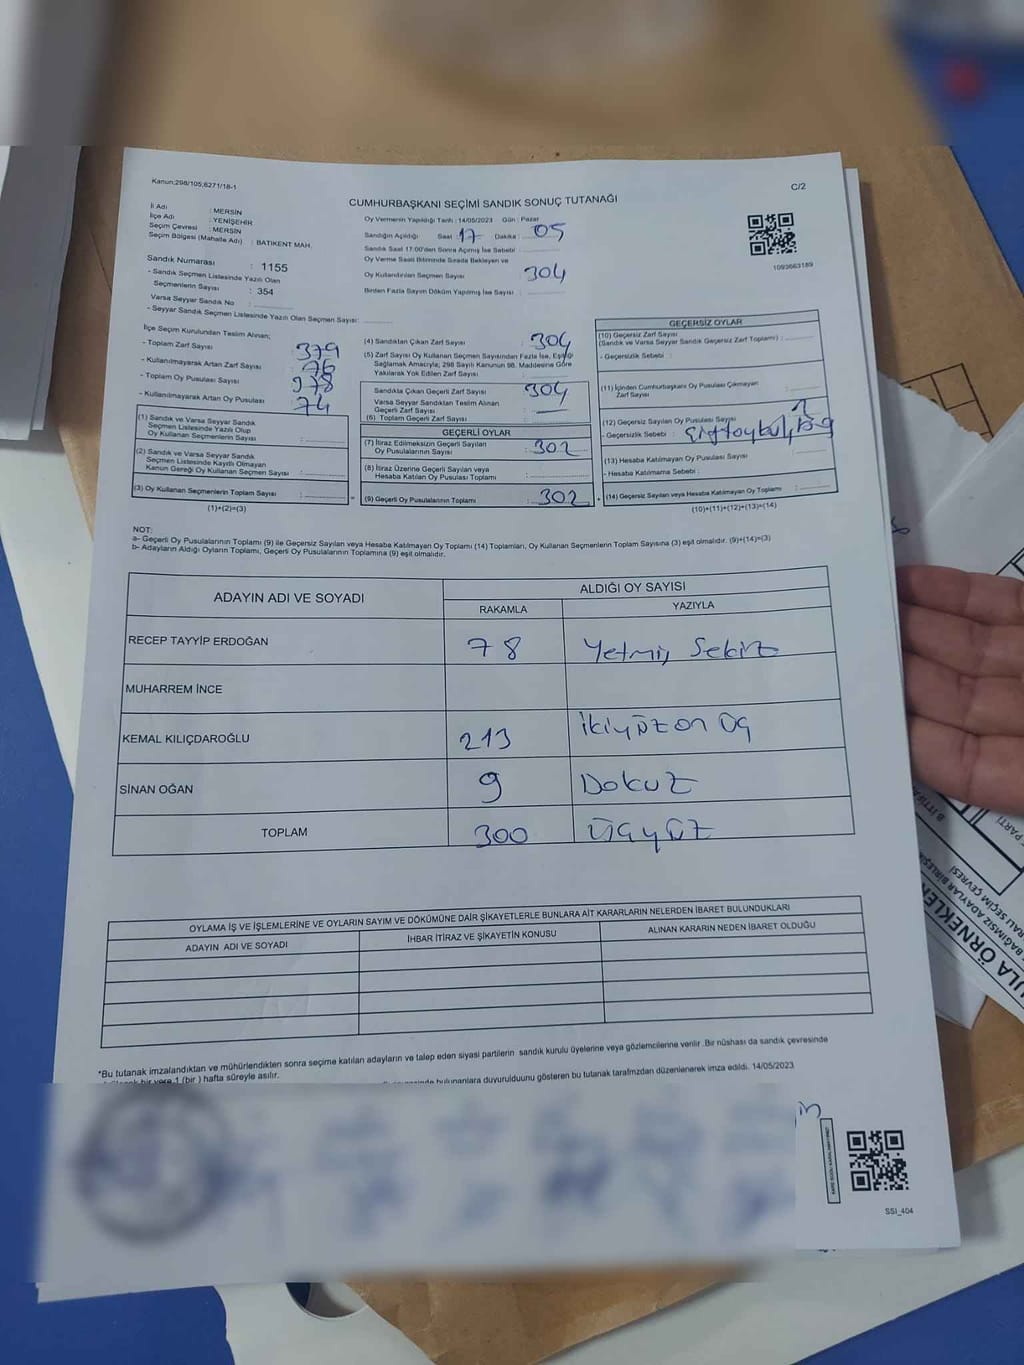 Kanun:298/105,6271/18-1
C/2
CUMHURBAŞKANI SEÇİMİ SANDIK SONUÇ TUTANAĞI
İl Adı : MERSİN
İlçe Adı : YENİŞEHİR
Seçim Çevresi : MERSİN
Seçim Bölgesi (Mahalle Adı) : BATIKENT MAH.
Sandık Numarası : 1155
- Sandık Seçmen Listesinde Yazılı Olan
Seçmenlerin Sayısı : 354
Varsa Seyyar Sandık No :
- Seyyar Sandık Seçmen Listesinde Yazılı Olan Seçmen Sayısı:
Oy Vermenin Yapıldığı Tarih : 14/05/2023 Gün : Pazar
Sandığın Açıldığı Saat 17 Dakika : 05
Sandık Saat 17:00'den Sonra Açılmış İse Sebebi :
Oy Verme Saati Bitiminde Sırada Bekleyen ve
Oy Kullandırılan Seçmen Sayısı : 304
Birden Fazla Sayım Döküm Yapılmış İse Sayısı :
1093663189
İlçe Seçim Kurulundan Teslim Alınan;
- Toplam Zarf Sayısı : 379
- Kullanılmayarak Artan Zarf Sayısı : 76
- Toplam Oy Pusulası Sayısı : 978
- Kullanılmayarak Artan Oy Pusulası : 74
(1) Sandık ve Varsa Seyyar Sandık
Seçmen Listesinde Yazılı Olup
Oy Kullanan Seçmenlerin Sayısı :
(2) Sandık ve Varsa Seyyar Sandık
Seçmen Listesinde Kayıtlı Olmayan
Kanun Gereği Oy Kullanan Seçmen Sayısı :
(3) Oy Kullanan Seçmenlerin Toplam Sayısı :
(1)+(2)=(3)
(4) Sandıktan Çıkan Zarf Sayısı : 304
(5) Zarf Sayısı Oy Kullanan Seçmen Sayısından Fazla İse, Eşitliği
Sağlamak Amacıyla; 298 Sayılı Kanunun 98. Maddesine Göre
Yakılarak Yok Edilen Zarf Sayısı :
Sandıkta Çıkan Geçerli Zarf Sayısı : 304
Varsa Seyyar Sandıktan Teslim Alınan
Geçerli Zarf Sayısı :
(6) Toplam Geçerli Zarf Sayısı :
GEÇERLİ OYLAR
(7) İtiraz Edilmeksizin Geçerli Sayılan
Oy Pusulalarının Sayısı : 302
(8) İtiraz Üzerine Geçerli Sayılan veya
Hesaba Katılan Oy Pusulaları Toplamı :
(9) Geçerli Oy Pusulalarının Toplamı : 302
GEÇERSİZ OYLAR
(10) Geçersiz Zarf Sayısı
(Sandık ve Varsa Seyyar Sandık Geçersiz Zarf Toplamı) :
- Geçersizlik Sebebi :
(11) İçinden Cumhurbaşkanı Oy Pusulası Çıkmayan
Zarf Sayısı :
(12) Geçersiz Sayılan Oy Pusulası Sayısı :
- Geçersizlik Sebebi :
(13) Hesaba Katılmayan Oy Pusulası Sayısı :
- Hesaba Katılmama Sebebi :
(14) Geçersiz Sayılan veya Hesaba Katılmayan Oy Toplamı :
(10)+(11)+(12)+(13)=(14)
NOT:
a- Geçerli Oy Pusulalarının Toplamı (9) ile Geçersiz Sayılan veya Hesaba Katılmayan Oy Toplamı (14) Toplamları, Oy Kullanan Seçmenlerin Toplam Sayısına (3) eşit olmalıdır. (9)+(14)=(3)
b- Adayların Aldığı Oyların Toplamı, Geçerli Oy Pusulalarının Toplamına (9) eşit olmalıdır.
ADAYIN ADI VE SOYADI
ALDIĞI OY SAYISI
RAKAMLA YAZIYLA
RECEP TAYYİP ERDOĞAN 78 Yetmiş Sekiz
MUHARREM İNCE
KEMAL KILIÇDAROĞLU 213 İkiyüzon Üç
SİNAN OĞAN 9 Dokuz
TOPLAM 300 Üçyüz
OYLAMA İŞ VE İŞLEMLERİNE VE OYLARIN SAYIM VE DÖKÜMÜNE DAİR ŞİKAYETLERLE BUNLARA AİT KARARLARIN NELERDEN İBARET BULUNDUKLARI
ADAYIN ADI VE SOYADI İHBAR İTİRAZ VE ŞİKAYETİN KONUSU ALINAN KARARIN NEDEN İBARET OLDUĞU
*Bu tutanak imzalandıktan ve mühürlendikten sonra seçime katılan adayların ve talep eden siyasi partilerin sandık kurulu üyelerine veya gözlemcilerine verilir. Bir nüshası da sandık çevresinde
bir yere 1 (bir) hafta süreyle asılır.
bulunanlara duyurulduunu gösteren bu tutanak tarafımızdan düzenlenerek imza edildi. 14/05/2023
SSI_404
PARTİ
SEÇİM ÇEVRESİ
BAĞIMSIZ ADAYLAR